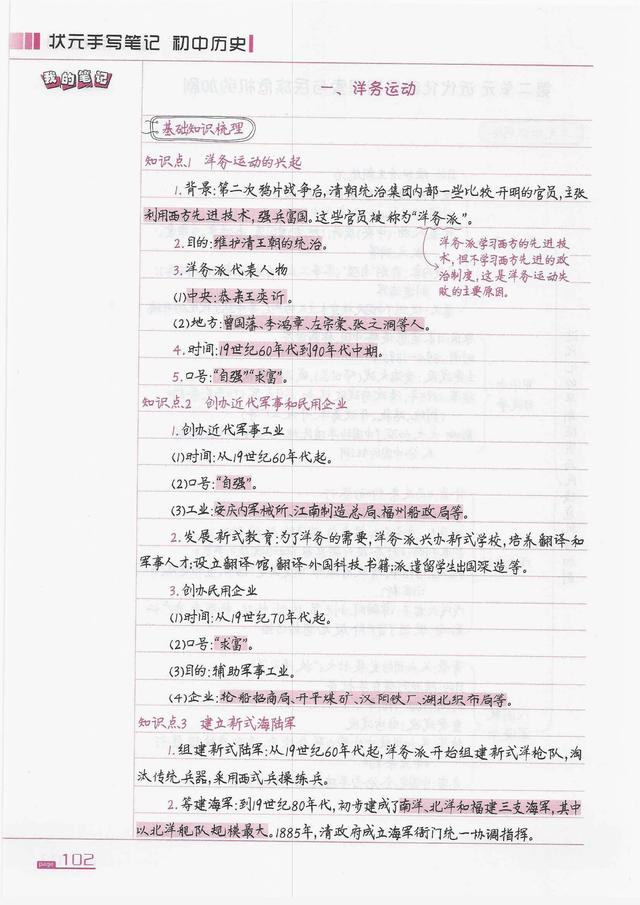 状元手写笔记 初中历史
我的笔记
一、洋务运动
基础知识梳理
知识点1 洋务运动的兴起
1.背景:第二次鸦片战争后,清朝统治集团内部一些比较开明的官员,主张
利用西方先进技术,强兵富国。这些官员被称为“洋务派”。
2.目的:维护清王朝的统治。
洋务派学习西方的先进技
术,但不学习西方先进的政
治制度,这是洋务运动失
败的主要原因。
3.洋务派代表人物
(1)中央:恭亲王奕䜣。
(2)地方:曾国藩、李鸿章、左宗棠、张之洞等人。
4.时间:19世纪60年代到90年代中期。
5.口号:“自强”“求富”。
知识点2 创办近代军事和民用企业
1.创办近代军事工业
(1)时间:从19世纪60年代起。
(2)口号:“自强”。
(3)工业:安庆内军械所、江南制造总局、福州船政局等。
2.发展新式教育:为了洋务的需要,洋务派兴办新式学校,培养翻译和
军事人才;设立翻译馆,翻译外国科技书籍;派遣留学生出国深造等。
3.创办民用企业
(1)时间:从19世纪70年代起。
(2)口号:“求富”。
(3)目的:辅助军事工业。
(4)企业:轮船招商局、开平煤矿、汉阳铁厂、湖北织布局等。
知识点3 建立新式海陆军
1.组建新式陆军:从19世纪60年代起,洋务派开始组建新式洋枪队,淘
汰传统兵器,采用西式兵操练兵。
2.筹建海军:到19世纪80年代,初步建成了南洋、北洋和福建三支海军,其中
以北洋舰队规模最大。1885年,清政府成立海军衙门统一协调指挥。
page 102